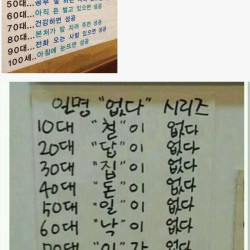 60대...아직 돈 벌고 있으면 성공
70대...건강하면 성공
80대...본처가 밥 차려 주면 성공
90대...전화 오는 사람 있으면 성공
100세..아침에 눈뜨면 성공
일명 "없다" 시리즈
10대 "철"이 없다
20대 "답"이 없다
30대 "집"이 없다
40대 "돈"이 없다
50대 "일"이 없다
60대 "낙"이 없다